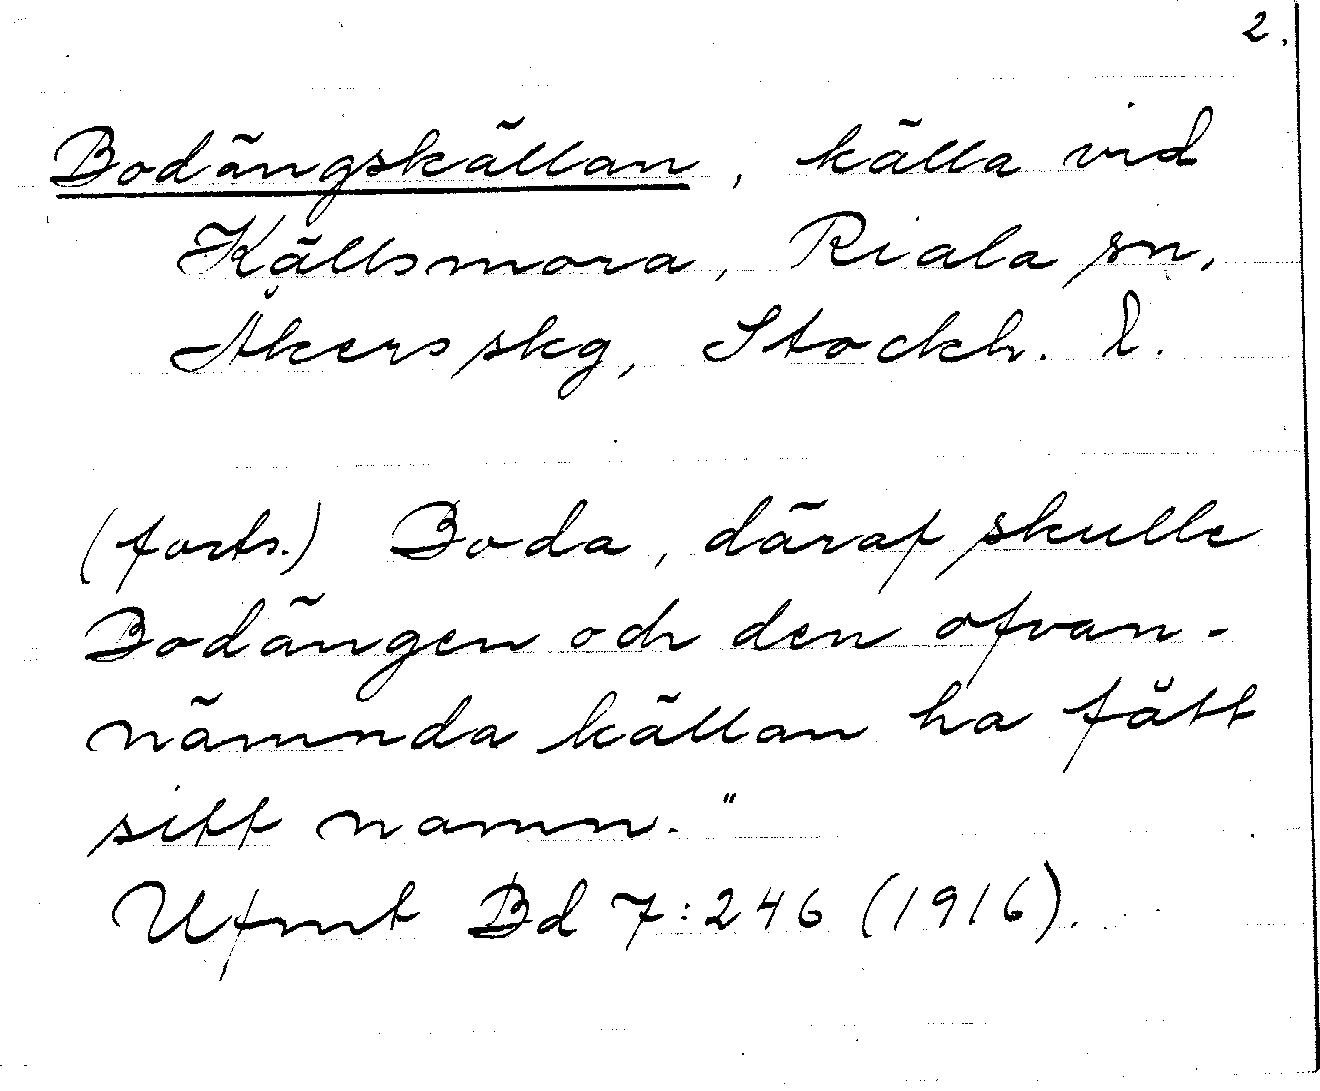 2.
Bodängskällan, källa vid
Källsmora, Riala sn,
Åkers skg, Stockh. l.
(forts.) Boda, däraf skulle
Bodängen och den ofvan-
nämnda källan ha fått
sitt namn."
Ufmt Bd 7:246 (1916).